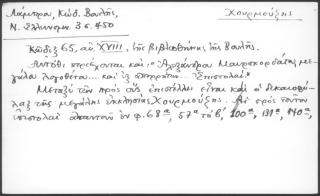 Λάμπρου, Κώδ. Βουλῆς,
Ν. Ἑλληνομν. 3 σ. 450
Χουρμούζης
Κῶδιξ 65, αἰ. XVIII, τῆς βιβλιοθήκης τῆς Βουλῆς.
Αὐτόθι περιέχονται καὶ: "Ἀλεξάνδρου Μαυροκορδάτου με-
γάλου λογοθέτου... καὶ ἐξ ἀπορρήτων... Ἐπιστολαί."
Μεταξὺ τῶν πρὸς οὓς ἐπιστέλλει εἶναι καὶ ὁ δικαιοφύ-
λαξ τῆς μεγάλης ἐκκλησίας Χουρμούζης. Αἱ πρὸς τοῦτον
ἐπιστολαὶ ἀπαντοῦν ἐν φ. 68α, 57α β, 100α, 139α 140α,